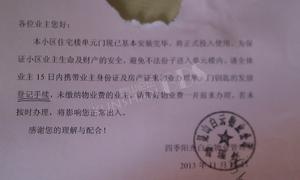 各位业主您好：
本小区住宅楼单元门现已基本安装完毕，将正式投入使用。为
保证小区业主生命及财产的安全，避免不法份子进入单元楼内。请全体
业主 15 日内携带业主身份证及房产证来物业办理单元门钥匙的发放
登记手续，未缴纳物业费的业主，请带好物业费一并前来办理。若未
按时办理，将影响您正常出入。
感谢您的理解与配合！
四季阳光
2013 年 11 月